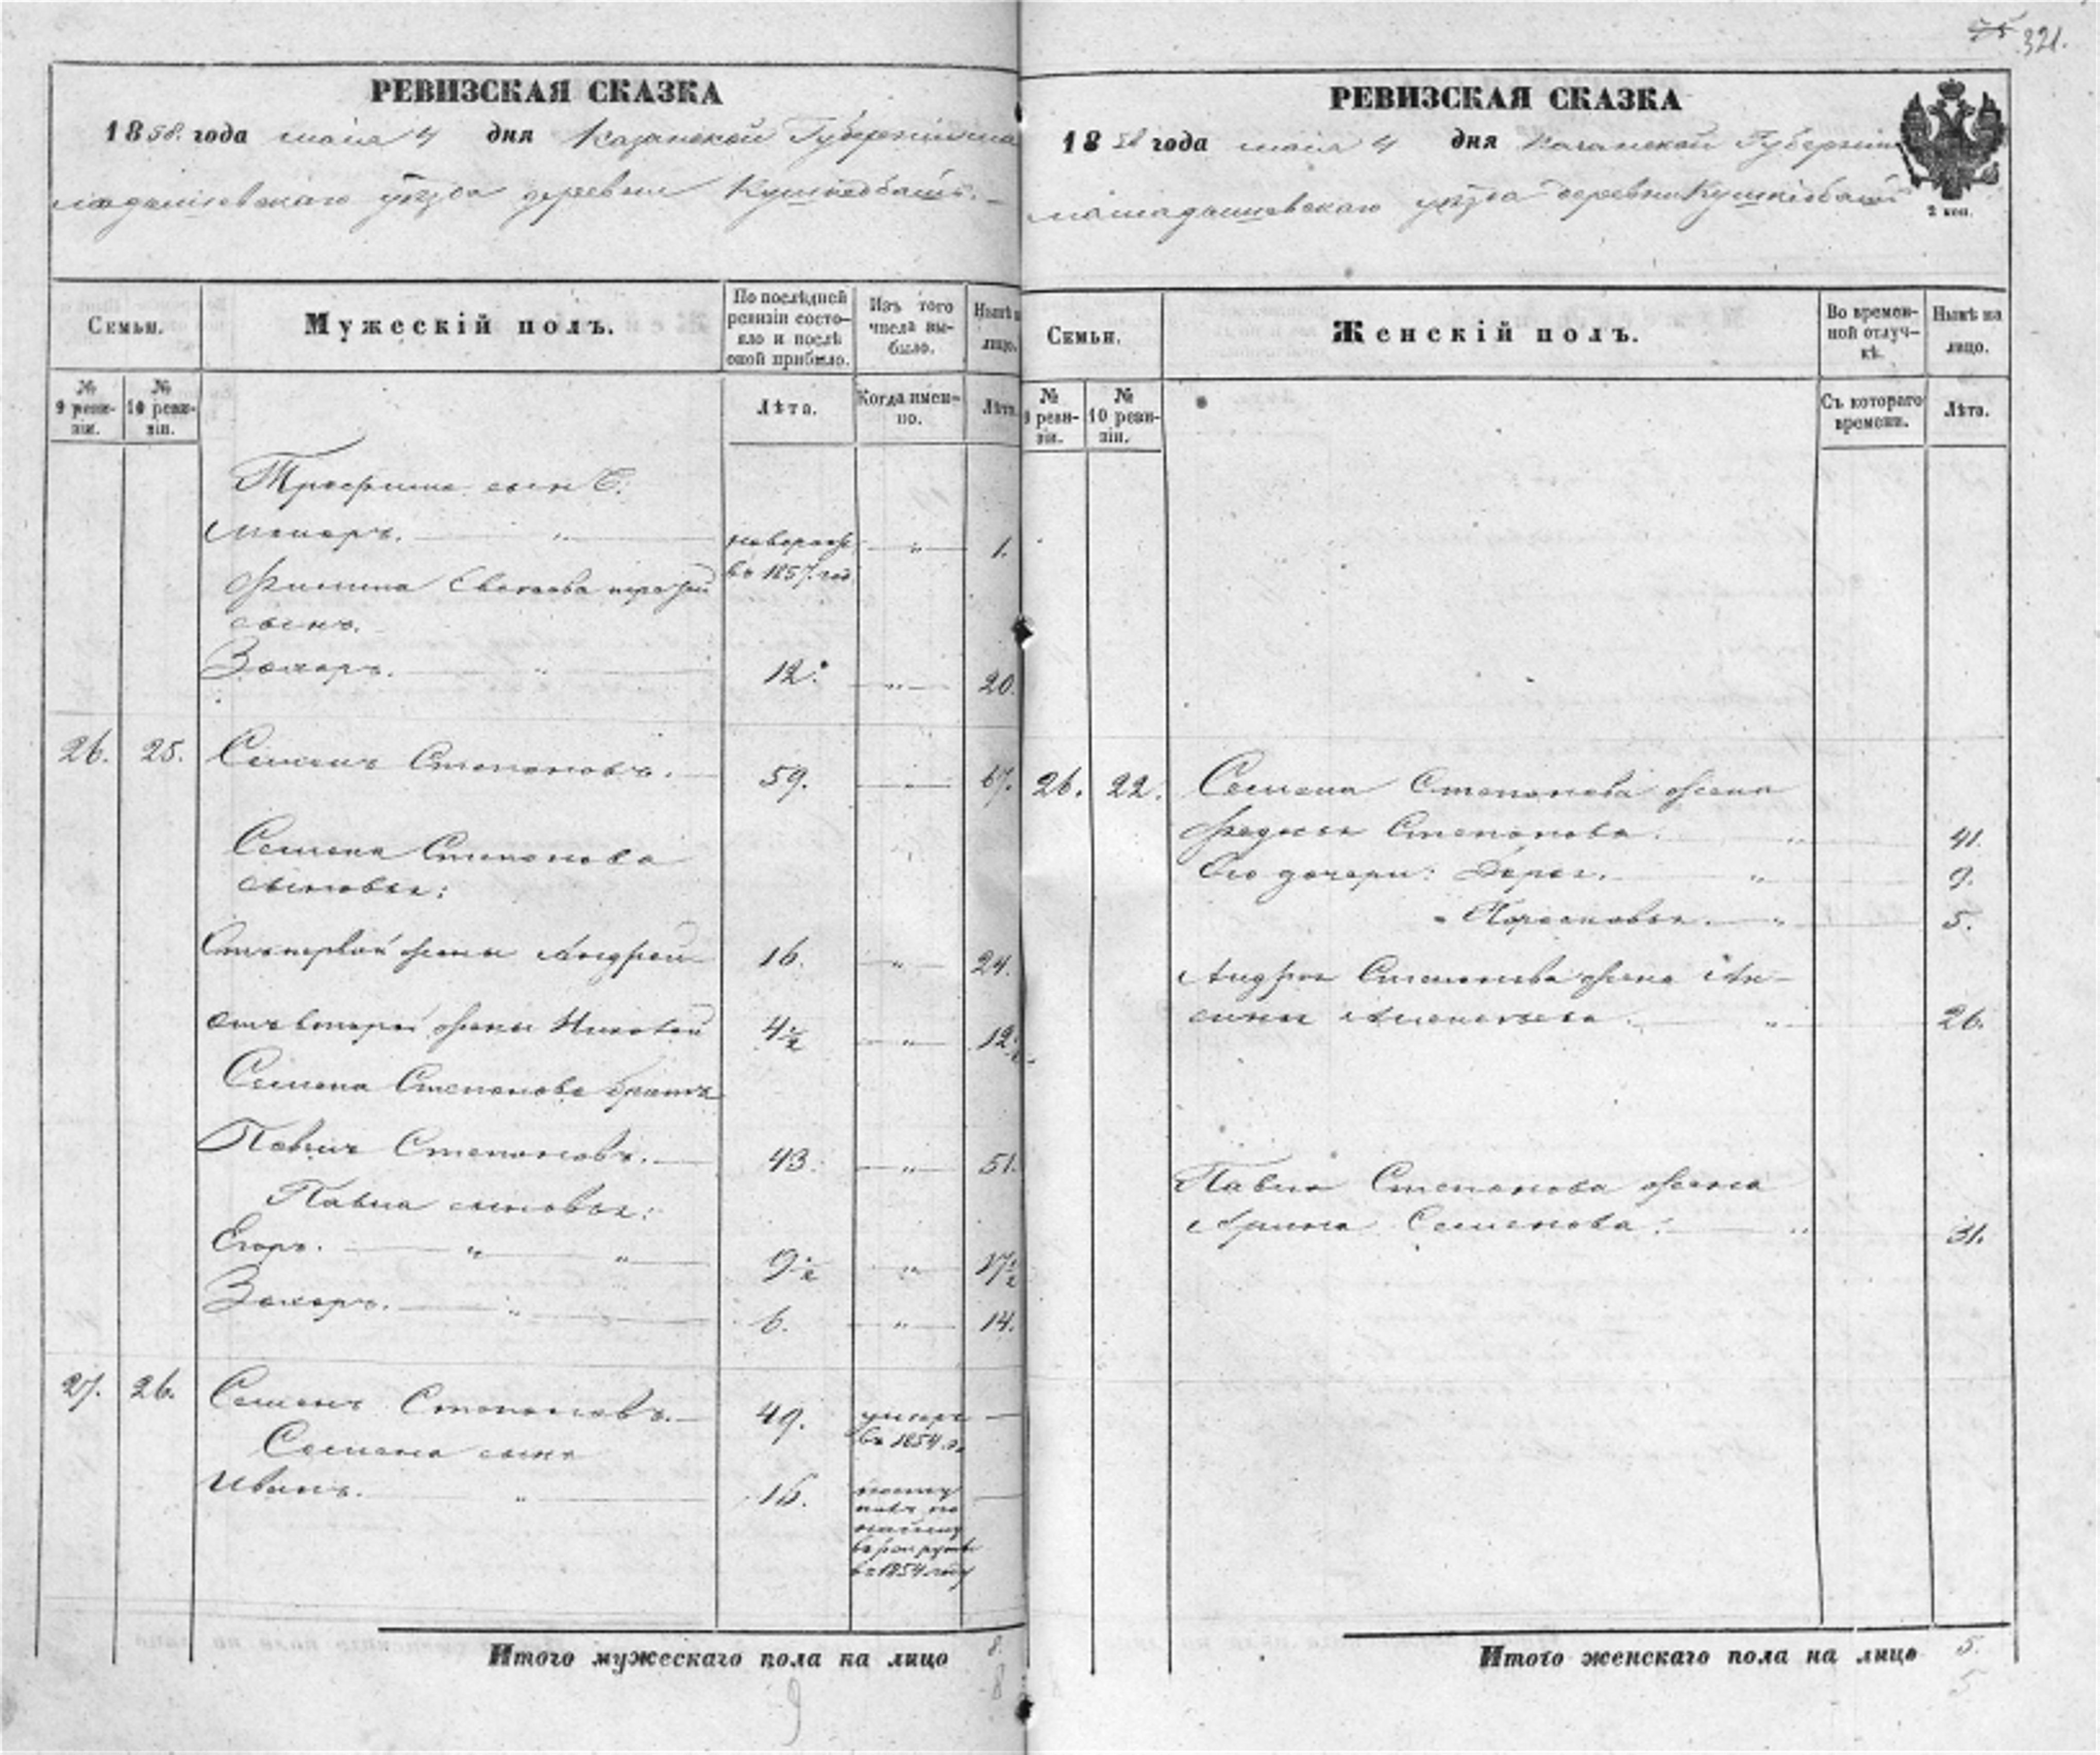 321.
РЕВИЗСКАЯ СКАЗКА
1858. года маія 4 дня Казанской Губерніи ма
мадышевскаго уѣзда деревни
Семьи.
Мужескій полъ.
По послѣдней ревизіи состо-
яло и послѣ
оной прибыло.
Изъ того
числа вы-
было.
Нынѣ н
лицо.
№
9 реви-
зіи.
№
10 реви-
зіи.
Лѣта.
Когда имен-
но.
Лѣта.
Трофима сынъ
Макаръ. " новорож " 1.
въ 1857. год
Филипа третій
сынъ.
Захаръ. " 12. " 20.
26. 25. Семенъ Степановъ. 59. " 67.
Семена Степанова
сыновья:
Отъ первой жены Андрей 16. " 24.
отъ второй жены Николай 4½ " 12½
Семена Степанова братъ
Павелъ Степановъ. 43. " 51.
Павла сыновья:
Егоръ. " " 9½ " 17½
Захаръ. " 6. " 14.
27. 26. Семенъ Степановъ. 49. умеръ —
въ 1854 г.
Семена сынъ
Иванъ. " 16. посту —
пилъ по
найму
въ рекруты
въ 1854 году
Итого мужескаго пола на лицо 8.
8
9
РЕВИЗСКАЯ СКАЗКА
1858 года маія 4 дня Казанской Губерніи
мамадышевскаго уѣзда деревни
2 коп.
Семьи.
Женскій полъ.
Во времен-
ной отлуч-
кѣ.
Нынѣ на
лицо.
№
9 реви-
зіи.
№
10 реви-
зіи.
Съ котораго
времени.
Лѣта.
26. 22. Семена Степанова жена
Федосья Степанова. " 41.
Его дочери: " 9.
" Парасковья. " 5.
Андрея Семенова жена Ак-
синья " 26.
Павла Степанова жена
Арина Семенова. " 31.
Итого женскаго пола на лицо 5.
5